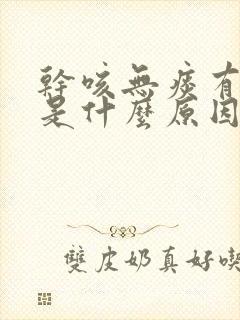 幹咳無痰有
是什麼原因
雙皮奶真好喫